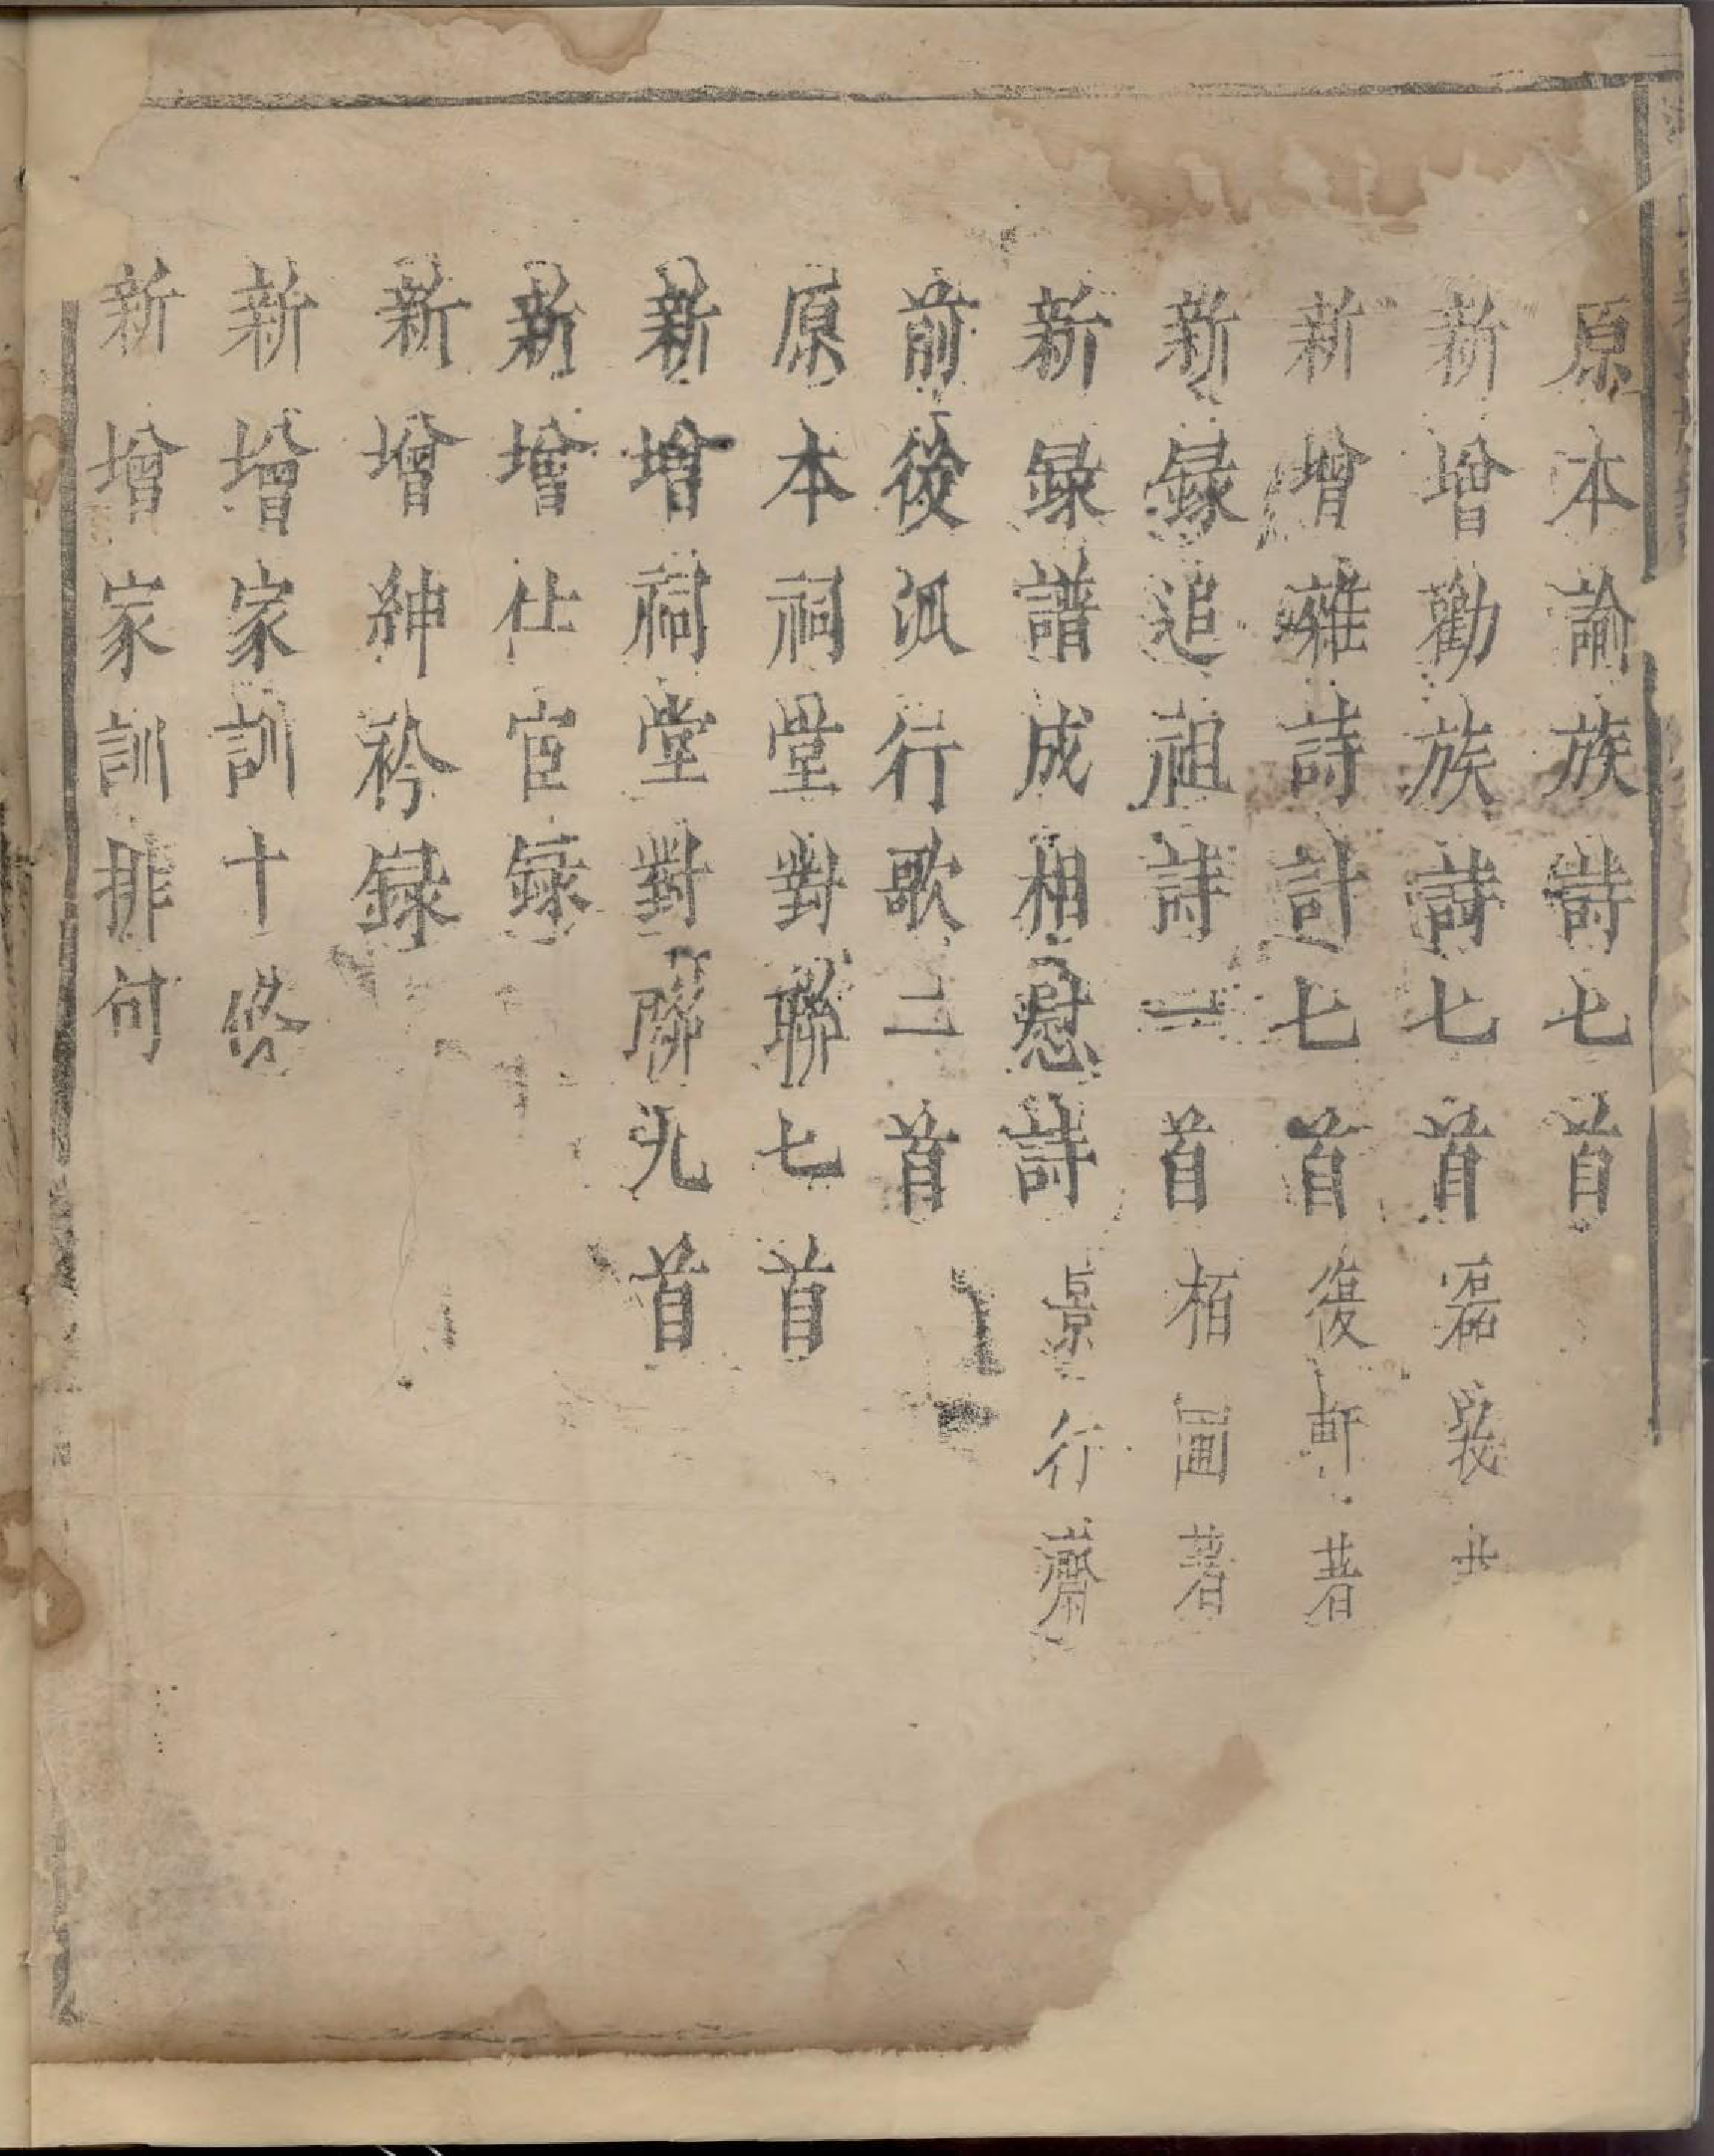 原本諭族詩七首
新增勸族詩七首磊
新增雜詩計七首復軒著
新録追祖詩一首栢圃著
新録譜成相慰詩景行齋
前後派行歌二首
原本祠堂對聯七首
新增祠堂對聯九首
新增仕宦録
新增紳衿録
新增家訓十條
新增家訓排句